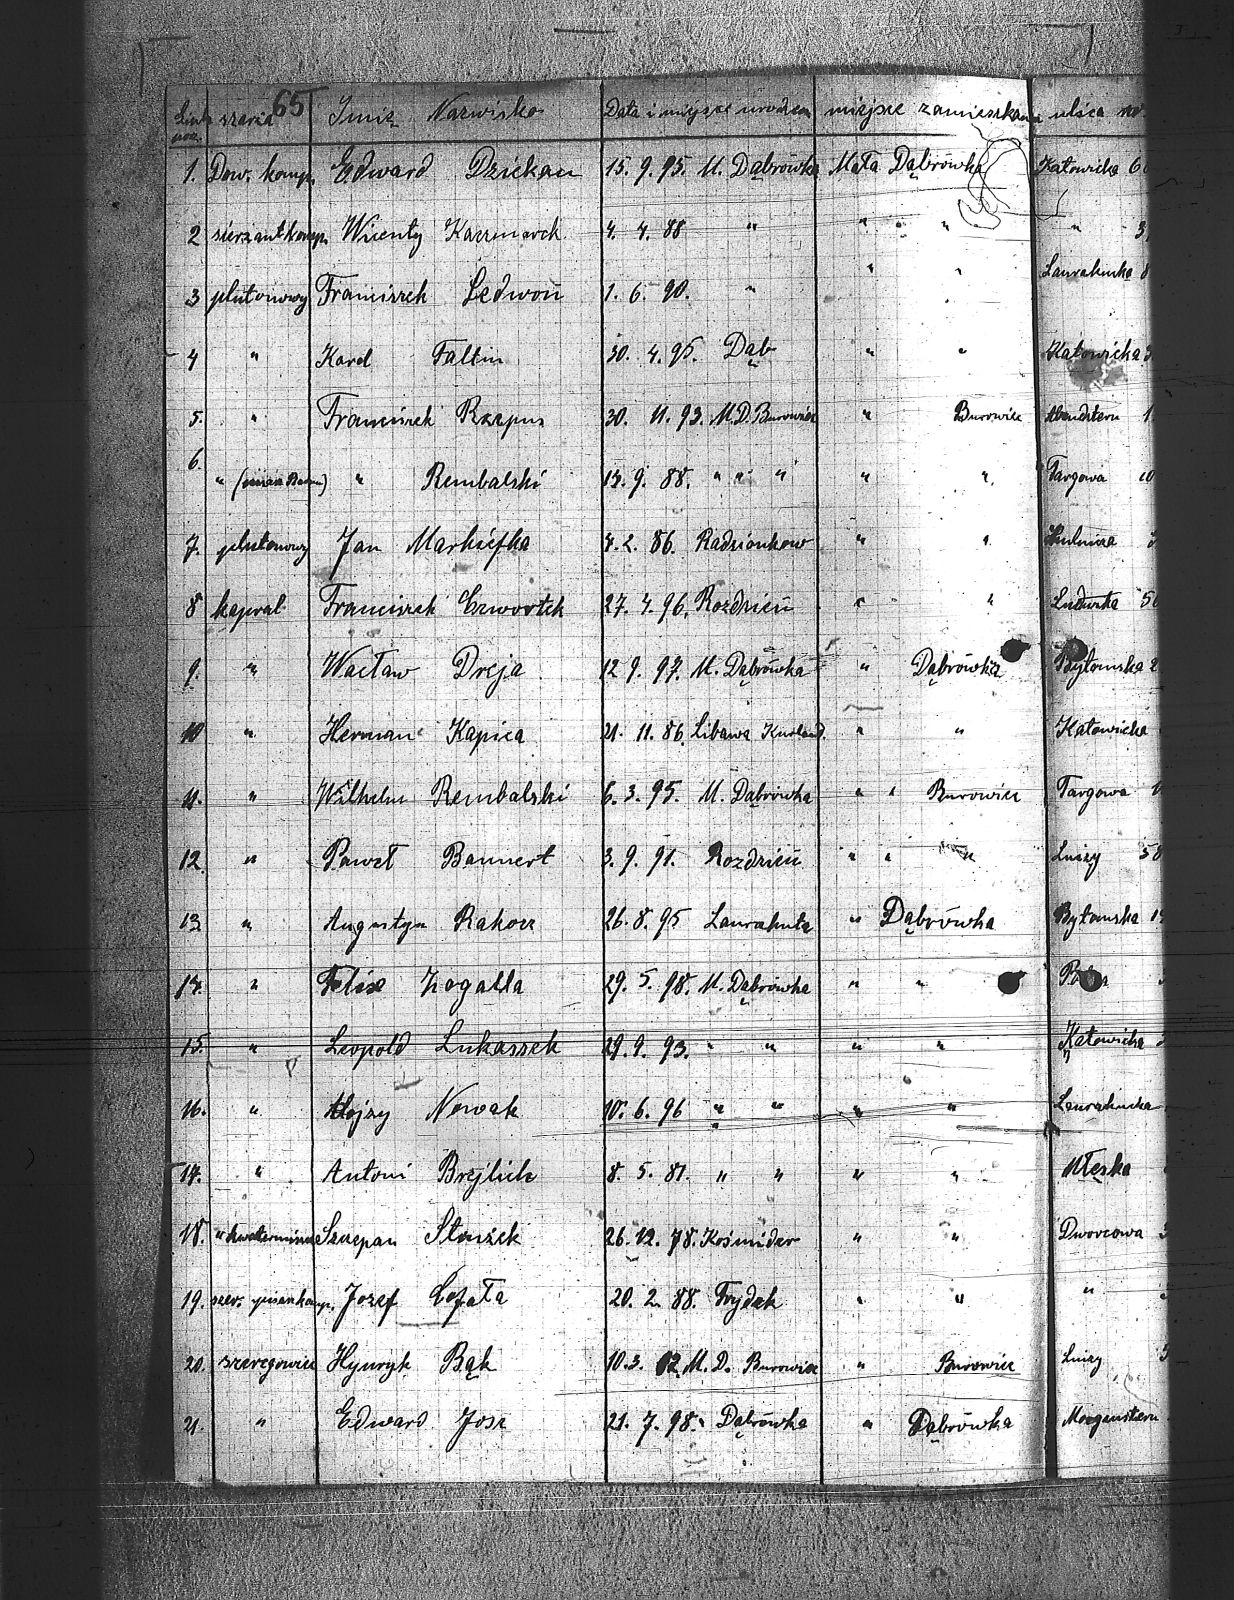 65
szarża Imię Nazwisko Data i miejsce urodzen miejsce zamieszkan ulica no
1. Dow. komp. Edward Dziekan 15. 9. 95. M. Dąbrówka Mała Dąbrówka Katowicka
2 sierżant komp. Wicenty Kaczmarek 4. 4. 88 " " " " "
3 plutonowy Franciszek Ledwoń 1. 6. 90. " " " Laurahucka
4 " Karol Faltin 30. 4. 95. Dąb " " Katowicka
5. " Franciszek Rzepus 30. 11. 93. M. D. Burowiec " Burowiec
6. " " Rembalski 14. 9. 88. " " " " " Targowa 10
7. plutonowy Jan Markiefka 4. 2. 86. Radzionkow " "
8 kapral Franciszek Czwortek 27. 4. 96. Rozdzień " " Ludwika
9. " Wacław Dreja 12 9. 97. M. Dąbrówka " Dąbrówka Bytomska 2
10 " Herman Kapica 21. 11. 86. Libawa Kurland. " " Katowicka
11. " Wilhelm Rembalski 6. 3. 95. M. Dąbrówka " " Burowiec Targowa
12 " Paweł Bannert 3. 9. 91. Rozdzień " " " Luizy 58
13 " Augustyn Rakocz 26. 8. 95 Laurahuta " Dąbrówka Bytomska
14. " Felix Zogalla 29. 5. 98. M. Dąbrówka " "
15. " Leopold Lukaszek 29. 9. 93. " " " " Katowicka
16. " Alojzy Nowak 10. 6. 96 " " " " Laurahucka
17. " Antoni Brejlich 8. 5. 81. " " " " Męska
18. " Szczepan Stenzek 26. 12. 78. Kośmider " " Dworcowa
19. szer. pisarz komp. Jozef Cofała 20. 2. 88. Frydek " " "
20. szeregowiec Hynryk Bąk 10. 3. 02. M. D. Burowiec " Burowiec Luizy
21. " Edward Josz 21. 7. 98. " Dąbrówka " Dąbrówka Morgenstern